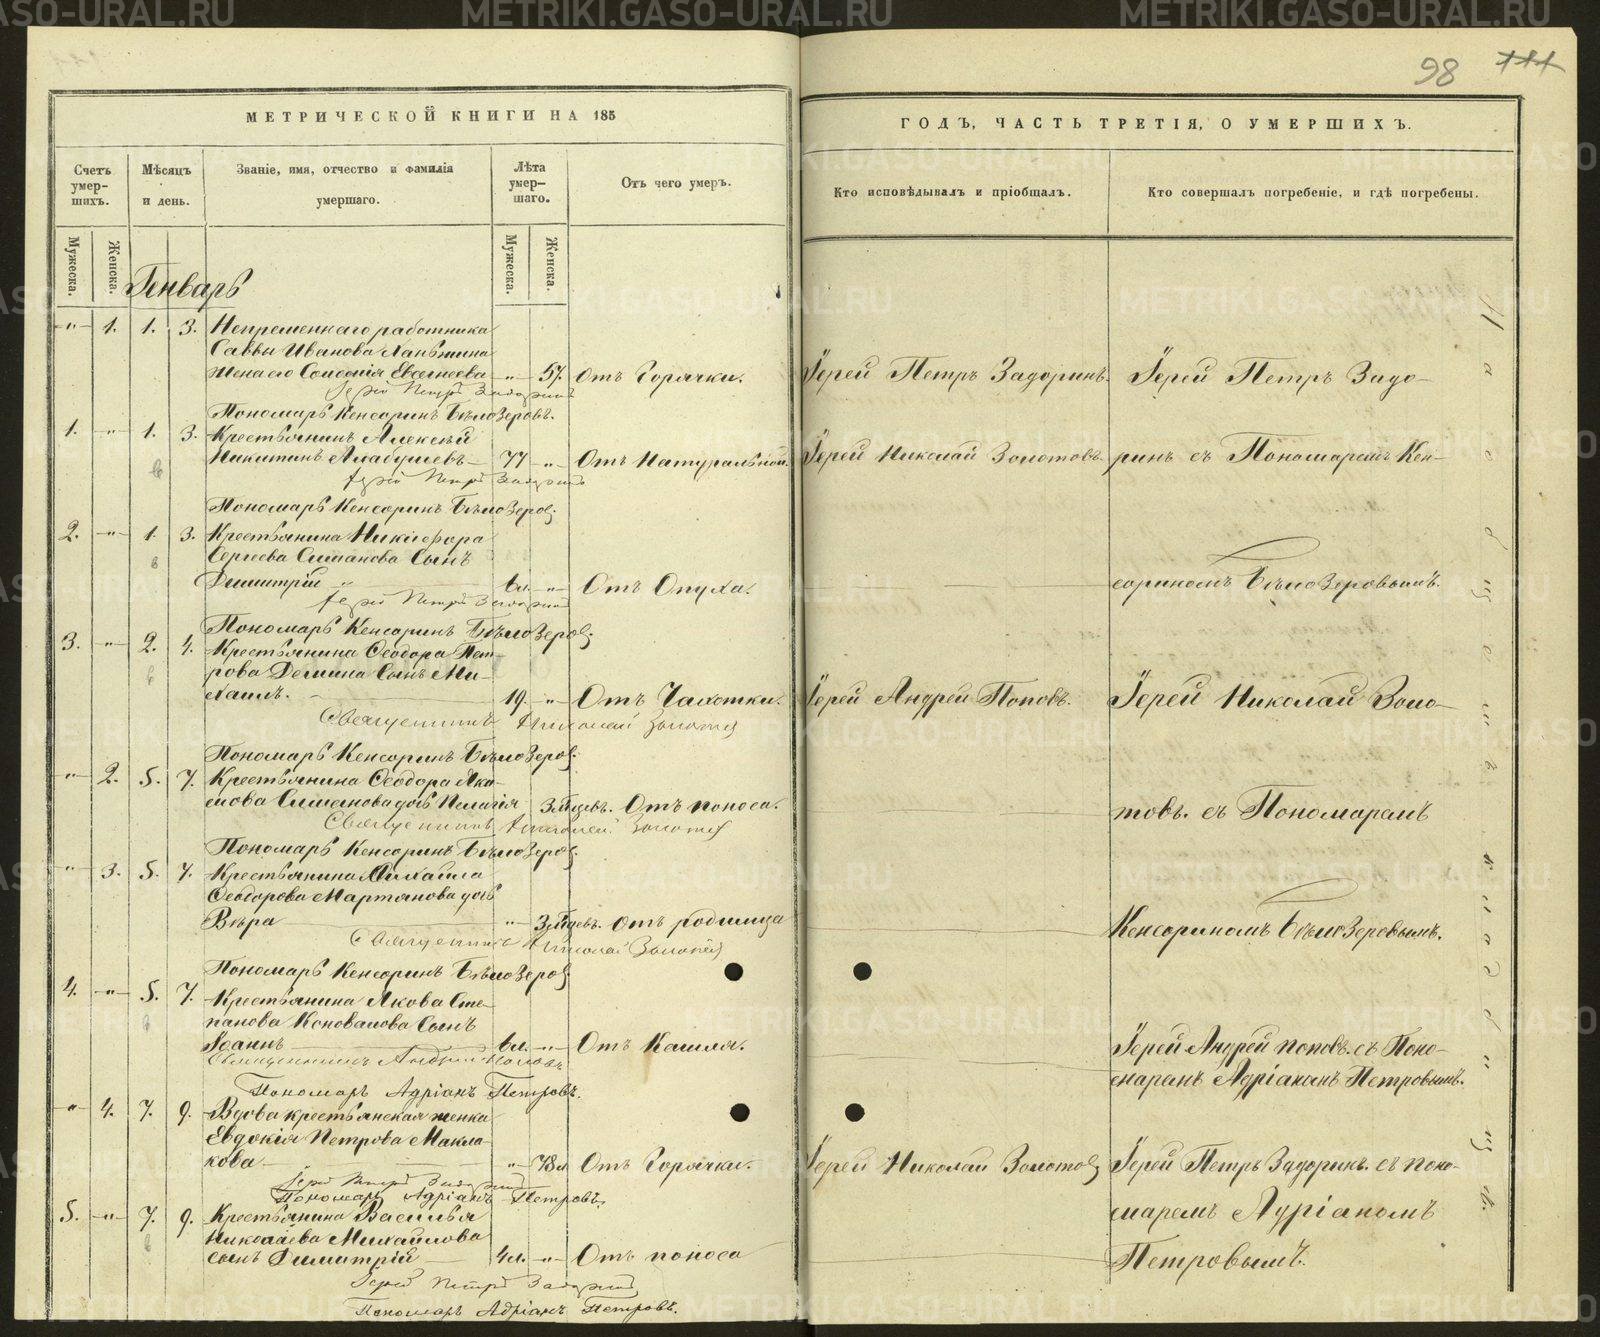 98 111
МЕТРИЧЕСКОЙ КНИГИ НА 185
ГОДЪ, ЧАСТЬ ТРЕТІЯ, О УМЕРШИХЪ.
Счетъ умер-шихъ.
Мѣсяцъ и день.
Званіе, имя, отчество и фамилія умершаго.
Лѣта умер-шаго.
Отъ чего умеръ.
Кто исповѣдывалъ и пріобщалъ.
Кто совершалъ погребеніе, и гдѣ погребены.
Мужеска. Женска.
Мужеска. Женска.
Генварь
-"- 1. 1. 3. Непременнаго работника
Саввы Иванова
жена его Евгеніева -"- 57. Отъ Горячки. Іерей Петръ Задоринъ. Іерей Петръ Задо-
Іерей Петръ Задоринъ
Пономарь Кенсоринъ Бѣлозеровъ.
1. -"- 1. 3. Крестьянинъ Алексѣй
Никитинъ 77 -"- Отъ Натуральной. Іерей Николай Золотовъ. ринъ съ Пономаремъ Кен-
Іерей Петръ Задоринъ
Пономарь Кенсоринъ Бѣлозеровъ.
2. -"- 1. 3. Крестьянина Никифора
Сергеева Симанова Сынъ
Димитрій 6л. -"- Отъ Опуха. сориномъ Бѣлозеровымъ.
Іерей Петръ Задоринъ
Пономарь Кенсоринъ Бѣлозеровъ.
3. -"- 2. 4. Крестьянина Ѳеодора Пет-
рова Демина Сынъ Ми-
хаилъ. 19. -"- Отъ Чахотки. Іерей Андрей Поповъ. Іерей Николай Золо-
Священникъ Николай Золотовъ
Пономарь Кенсоринъ Бѣлозеровъ.
-"- 2. 5. 7. Крестьянина Ѳеодора Яки-
мова Симанова дочь Пелагія 3 мѣсев. Отъ поноса. товъ. съ Пономаремъ
Священникъ Николай Золотовъ
Пономарь Кенсоринъ Бѣлозеровъ.
-"- 3. 5. 7. Крестьянина Михаила
Ѳеодорова Мартянова дочь
Вѣра -"- 3 мѣсев. отъ родимца Кенсориномъ Бѣлозеровымъ.
Священникъ Николай Золотовъ
Пономарь Кенсоринъ Бѣлозеровъ.
4. -"- 5. 7. Крестьянина Якова Сте-
панова Коновалова Сынъ
Іоаннъ 6л. -"- Отъ Кашля. Іерей Андрей Поповъ. съ Поно-
Священникъ Андрей Поповъ
маремъ Адріаномъ Петровымъ.
Пономарь Адріанъ Петровъ.
-"- 4. 7. 9. Вдова крестьянская женка
Евдокія Петрова Макла-
кова -"- 78л Отъ Горячки. Іерей Николай Золотовъ Іерей Петръ Задоринъ. съ поно-
Іерей Петръ Задоринъ
Пономарь Адріанъ Петровъ.
5. -"- 7. 9. Крестьянина Василья
маремъ Адріаномъ
Николаева Михайлова
сынъ Димитрій 4л. -"- Отъ поноса Петровымъ.
Іерей Петръ Задоринъ
Пономарь Адріанъ Петровъ.
METRIKI.GASO-URAL.RU